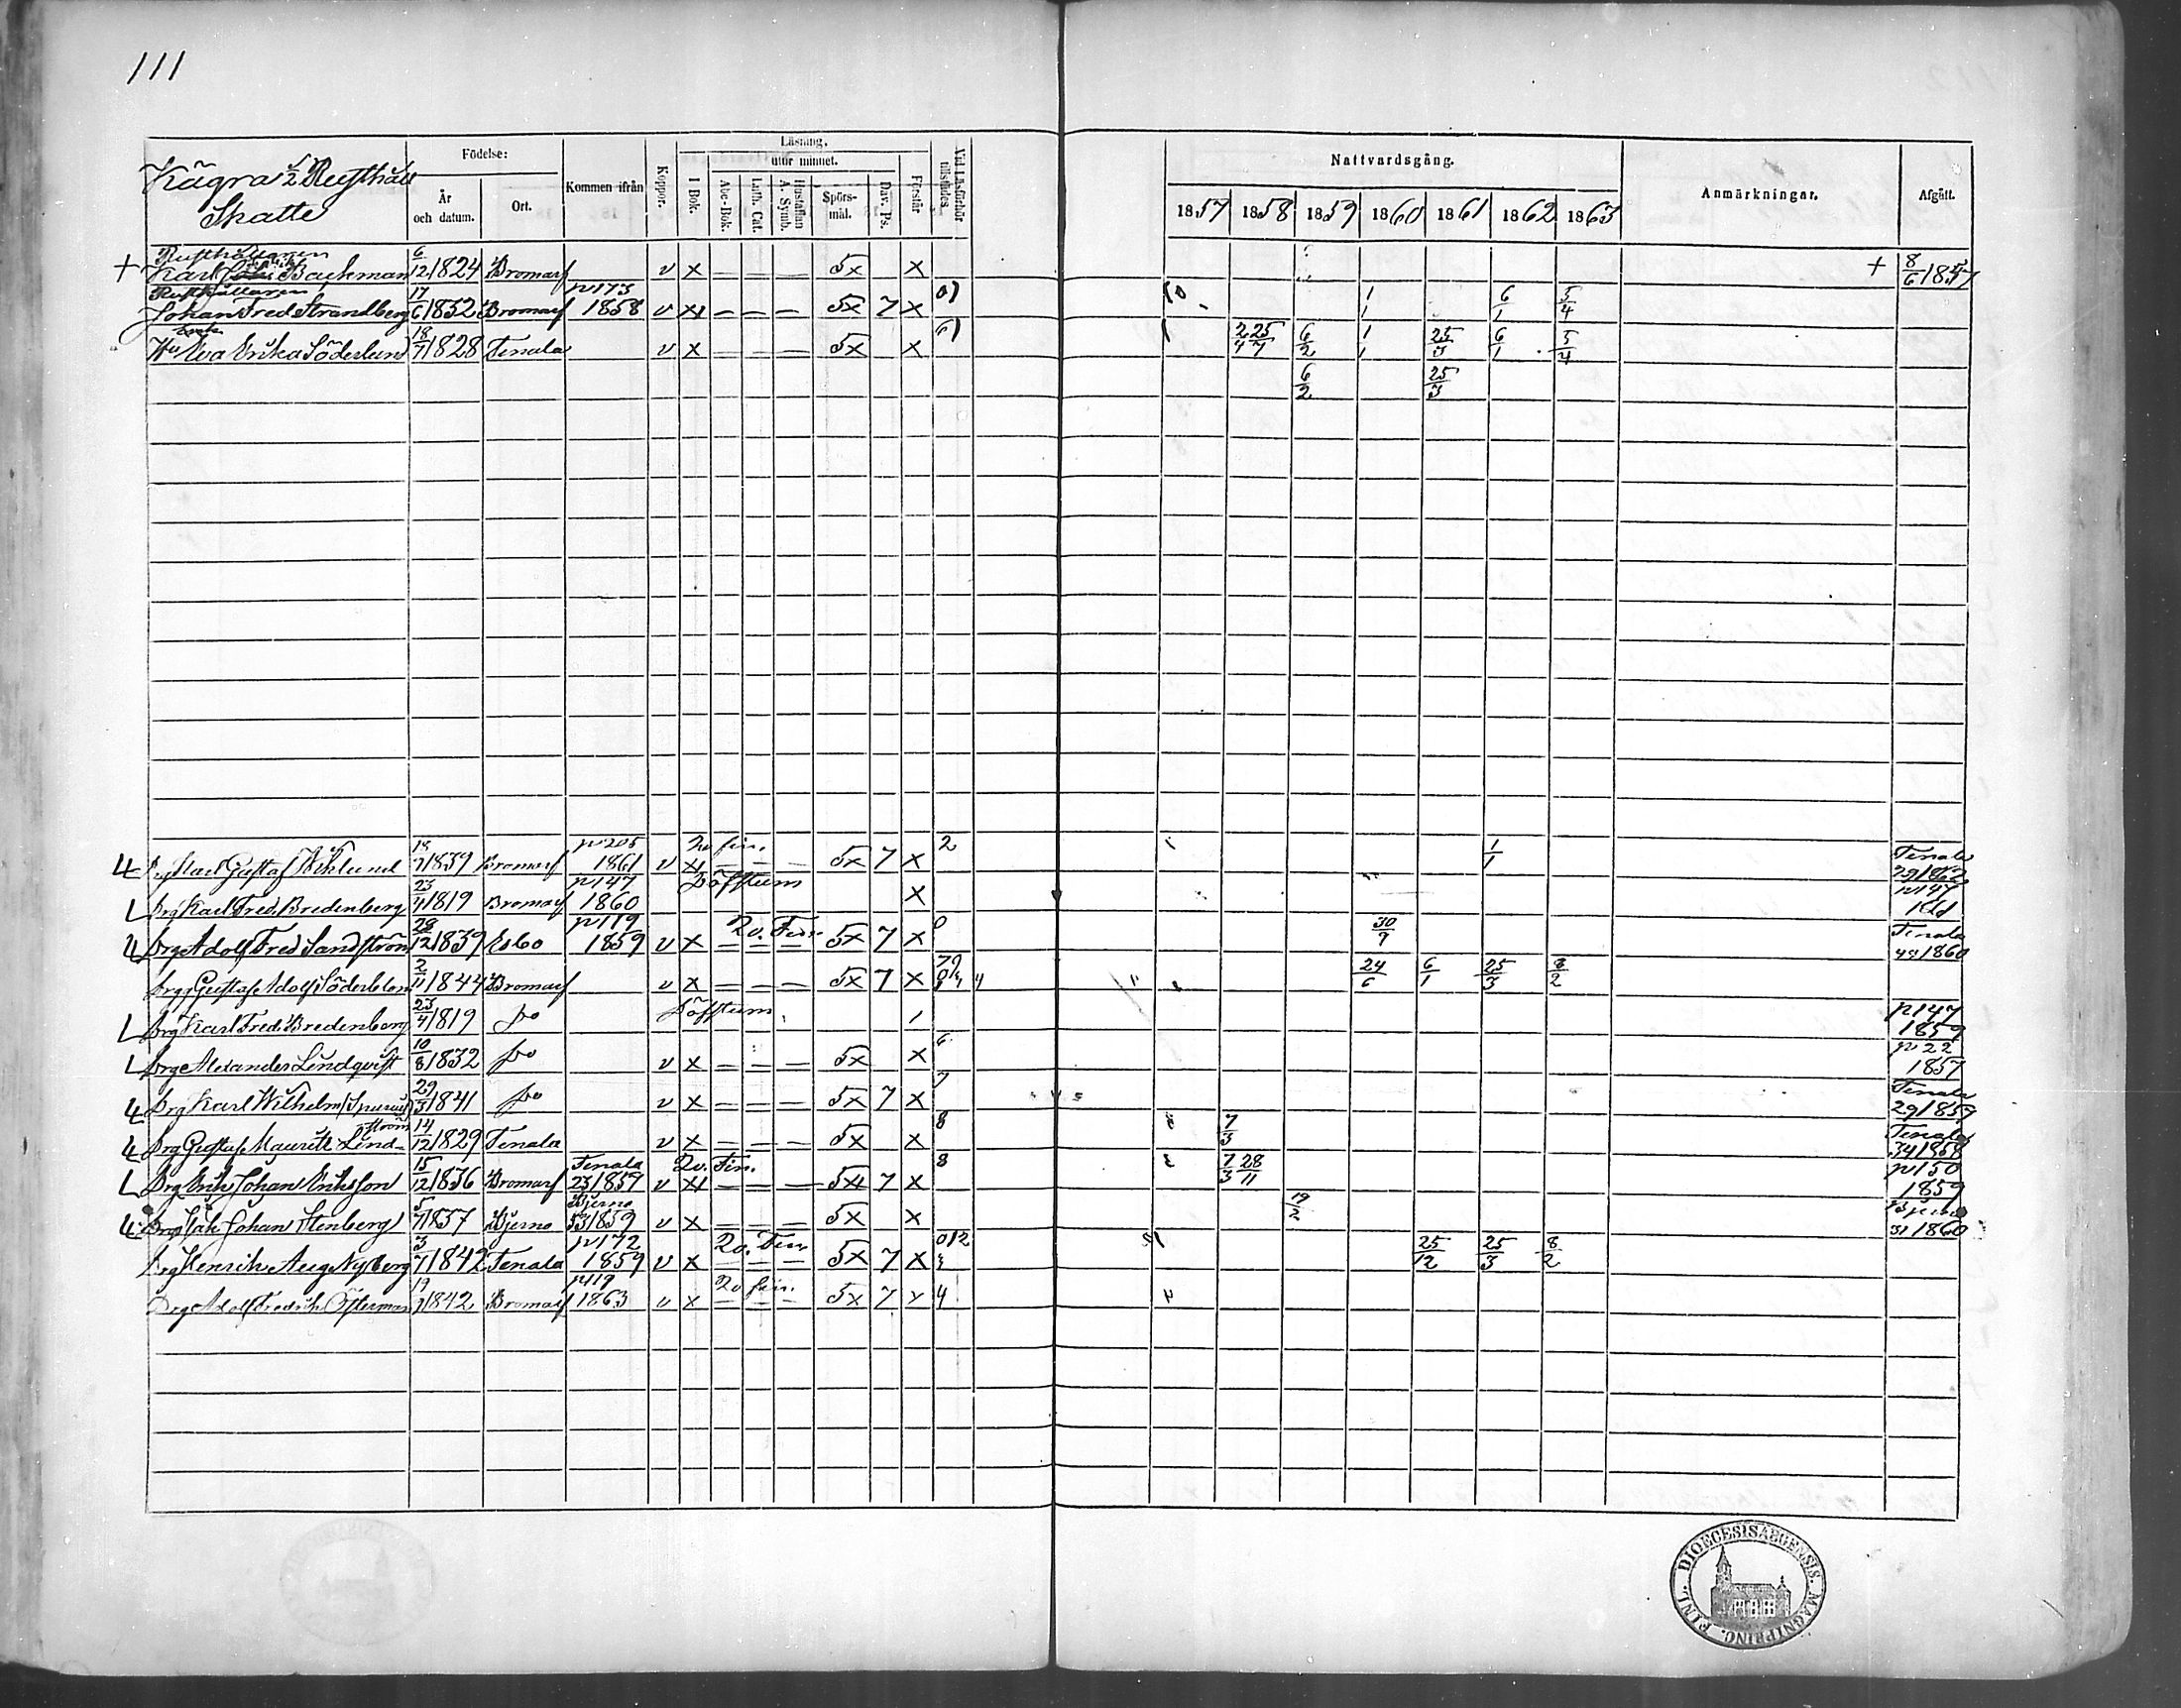 111
Kägra ½ Rusthåll
Skatte
Födelse:
År och datum.
Ort.
Kommen ifrån
Koppor.
Läsning.
I Bok.
utur minnet.
Abc-Bok.
Luth. Cat.
Hustaflan A. Symb.
Spörs-mål.
Dav. Ps.
Förstår
Vid Läsförhör tillstädes
Nattvardsgång.
1857 1858 1859 1860 1861 1862 1863
Anmärkningar.
Afgått.
Rusthållaren
+ Karl Backman 6/12 1824 Bromarf v x — — — 5x x + 8/6 1857
Rusthållaren p 173
Johan Fred Strandberg 17/6 1832 Bromarf 1858 v x — — — 5x 7 x 1/1 6/1 5/4
Enka
Hu Eva Erika Söderlund 18/7 1828 Tenala v x — — — 5x x 25/7 6/2 1/1 25/3 6/1 5/4
6/2 25/3
p 205 2 v fin. 2
Drg Karl Gustaf Wiklund 18/7 1839 Bromarf 1861 v x — — — 5x 7 x 1/1 Tenala
p 147 Döfstum
Drg Karl Fred. Bredenberg 23/4 1819 Bromarf 1860 x p 147
p 119 2 v. Fin. 0
Drg Adolf Fred Sandström 28/12 1839 Esbo 1859 v x — — — 5x 7 x 30/9 Tenala 1860
Drg Gustaf Adolf Söderblom 2/11 1844 Bromarf v x — — — 5x 7 x 24/6 6/1 25/3 8/2
Drg Karl Fred Bredenberg 23/4 1819 Do Döfstum p 147 1859
Drg Alexander Lindqvist 10/8 1832 Do v x — — — 5x x 6 p 22 1857
Drg Karl Wilhelm 29/3 1841 Do v x — — — 5x 7 x 7 Tenala 29 1859
Drg Gustaf Mauritz Lind-ström 14/12 1829 Tenala v x — — — 5x x 8 7/3 Tenala 34 1858
Tenala 2 v. Fin. 8
Drg Erik Johan Eriksson 15/12 1836 Bromarf 23 1857 v x — — — 5x 7 x 7/3 28/11 p 150 1859
Bjerno
Drg Isak Johan Stenberg 5/7 1837 Bjerno 53 1859 v x — — — 5x x 19/2 Bjerno 31 1860
p 172 2 v. Fin 012
Drg Henrik Aug Nyberg 3/7 1842 Tenala 1859 v x — — — 5x 7 x 25/12 25/3 8/2
p 119 2 v fin.
Drg Adolf Fredrik Österman 19/7 1842 Bromarf 1863 v x — — — 5x 7 x 4
DIOECESIS AEGENSIS. MAGNI PRINC. FINL.